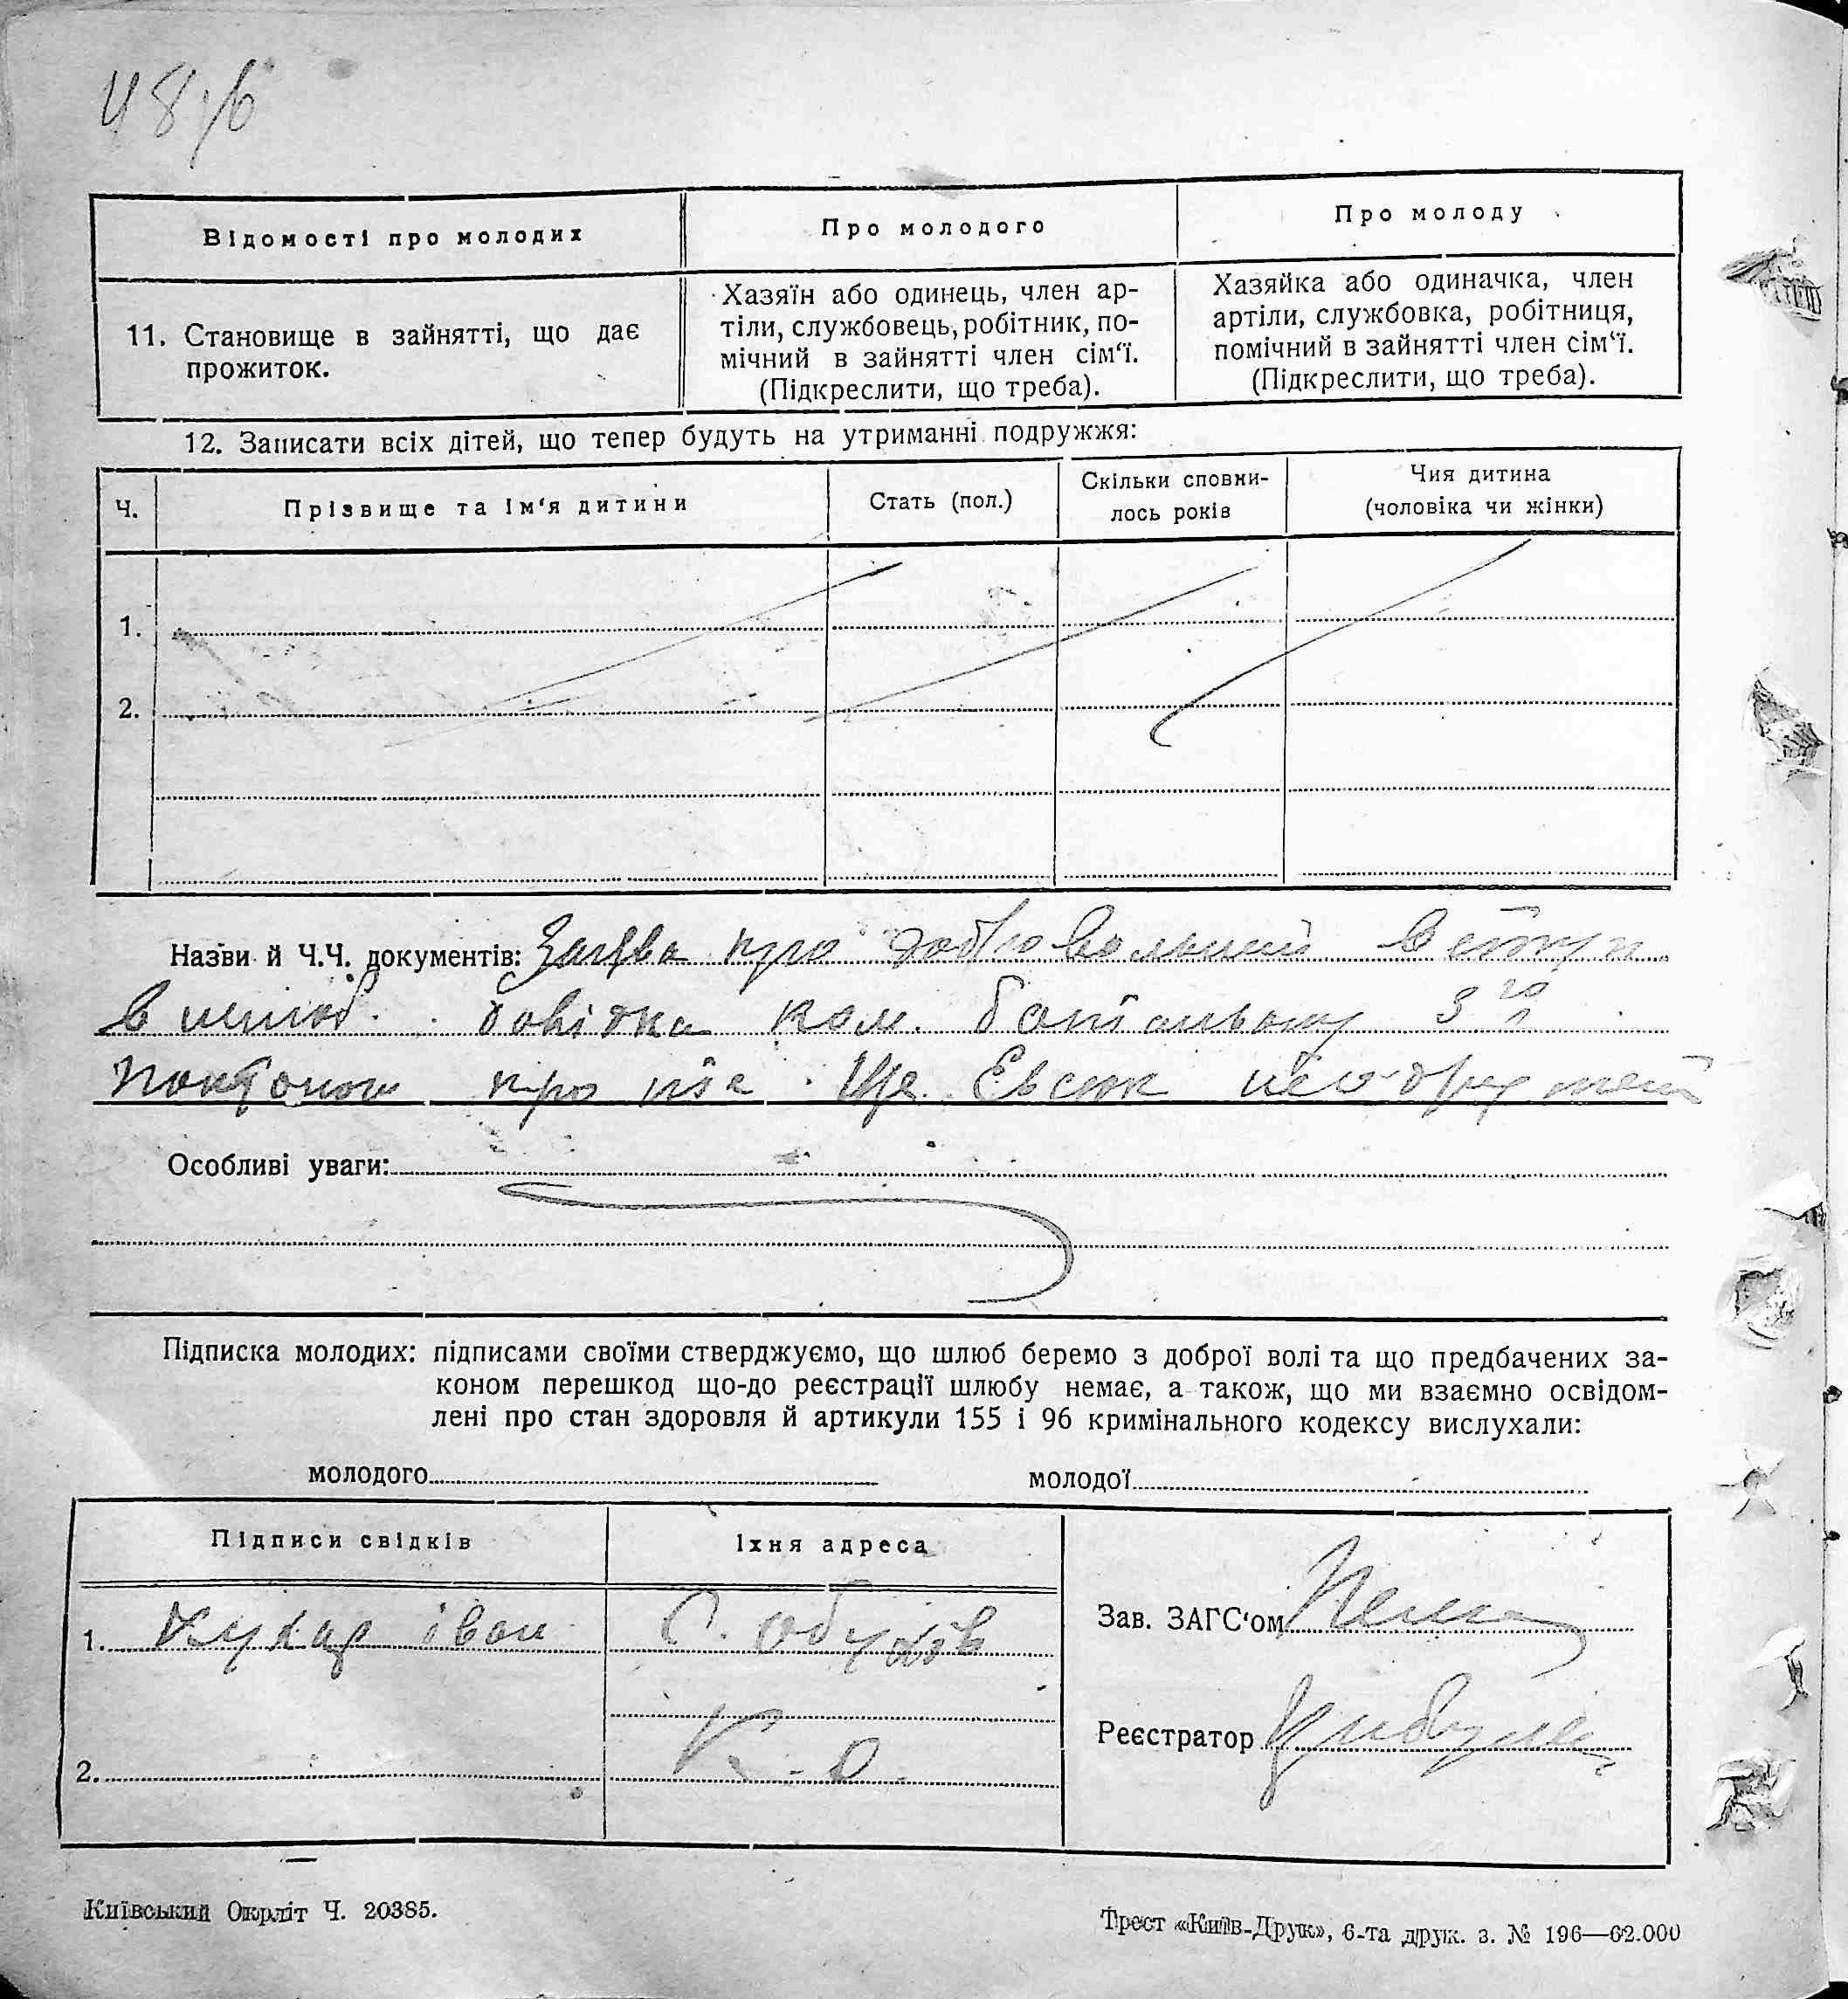 Відомості про молодих
Про молодого
Про молоду
11. Становище в зайнятті, що дає
прожиток.
Хазяїн або одинець, член ар-
тіли, службовець, робітник, по-
мічний в зайнятті член сім‘ї.
(Підкреслити, що треба).
Хазяйка або одиначка, член
артіли, службовка, робітниця,
помічний в зайнятті член сім‘ї.
(Підкреслити, що треба).
12. Записати всіх дітей, що тепер будуть на утриманні подружжя:
Ч.
Прізвище та ім‘я дитини
Стать (пол.)
Скільки сповни-
лось років
Чия дитина
(чоловіка чи жінки)
1.
2.
Назви й Ч.Ч. документів: Заява про добровольний вступ
в довідка ком. 3
про що
Особливі уваги:
Підписка молодих: підписами своїми стверджуємо, що шлюб беремо з доброї волі та що предбачених за-
коном перешкод що-до реєстрації шлюбу немає, а також, що ми взаємно освідом-
лені про стан здоровля й артикули 155 і 96 кримінального кодексу вислухали:
молодого
молодої
Підписи свідків
Їхня адреса
1. Кухар іван
С. Обухів
2.
К. О.
Зав. ЗАГС‘ом
Реєстратор
Київський Окрліт Ч. 20385.
Трест «Київ-Друк», 6-та друк. з. № 196—62.000